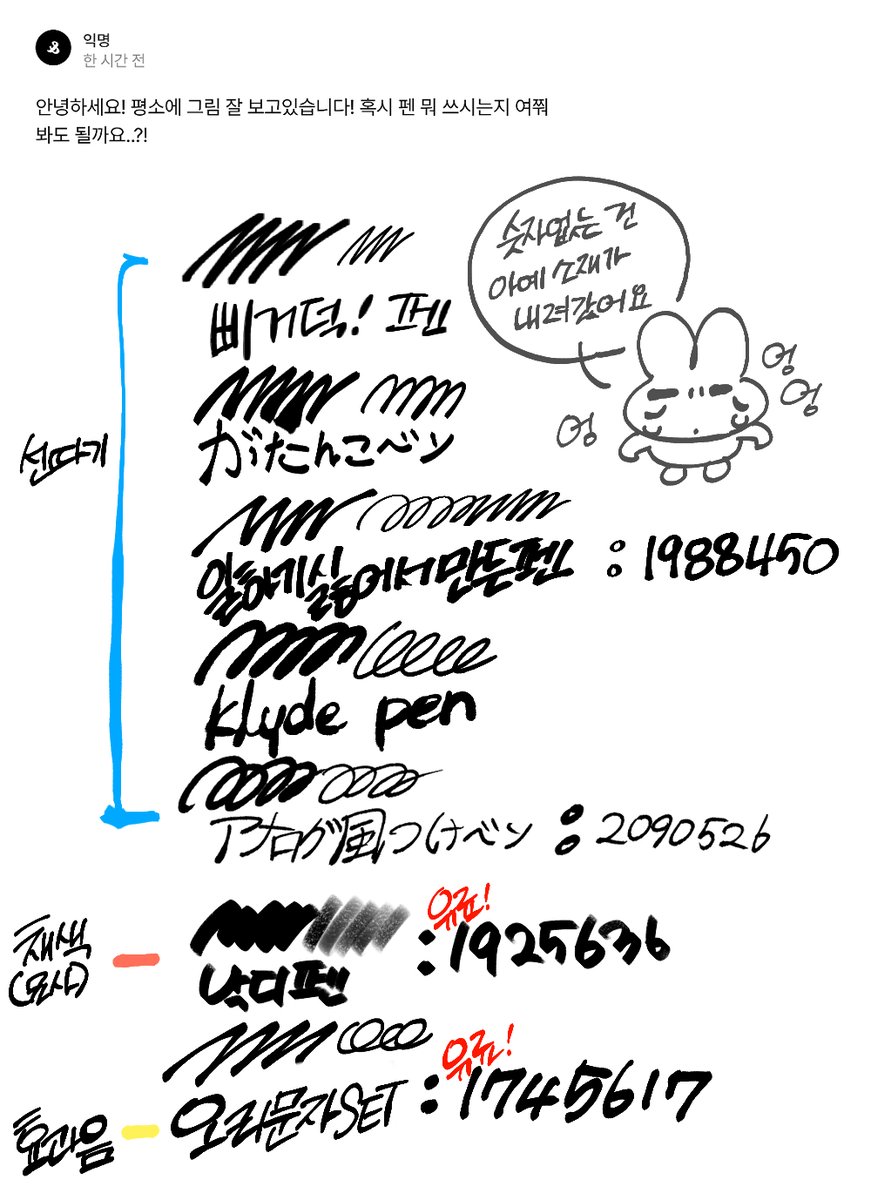 익명
한 시간 전
안녕하세요! 평소에 그림 잘 보고있습니다! 혹시 펜 뭐 쓰시는지 여쭤
봐도 될까요..?!
숫자없는 건
아예 소재가
내려갔어요
엉
엉
엉
선따기
삐거덕! 펜
がたんこペン
일하기싫어서만든펜 : 1988450
klyde pen
アナログ風つけペン : 2090526
채색
(묘사)
낙디펜 : 1925636
유료!
효과음
오리문자SET : 1745617
유료!